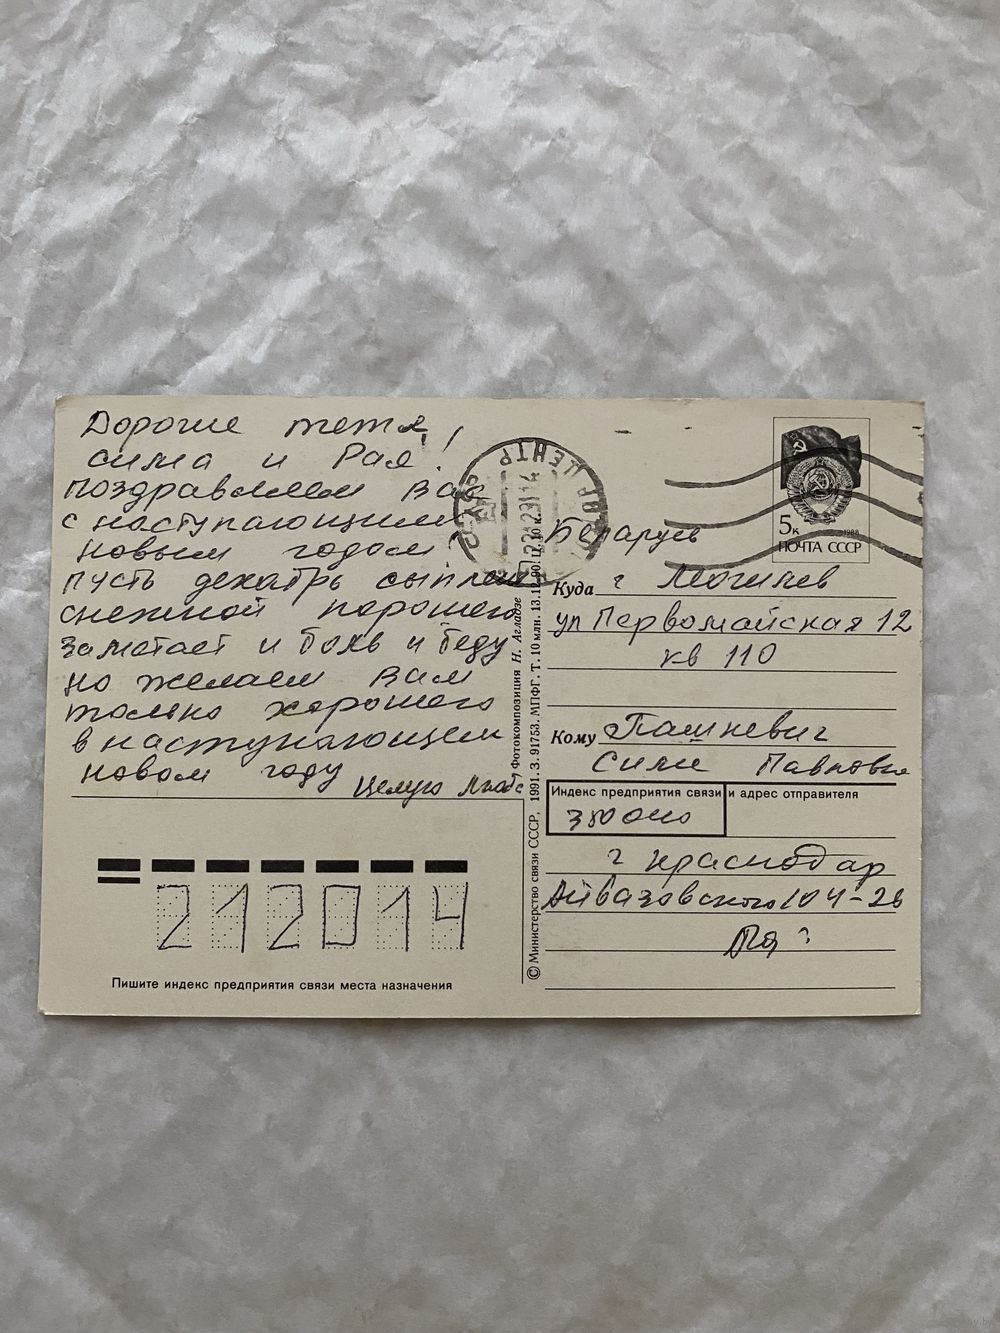 Дорогие тетя
Сима и Рая!
Поздравляем Вас
с наступающим
Новым годом!
Пусть декабрь сыплет
снежной порошею
Заметает и боль и беду
но желаем Вам
только хорошего
в наступающем
новом году
Целую Люба
212014
Пишите индекс предприятия связи места назначения
© Министерство связи СССР, 1991. З. 91753. МПФГ. Т. 10 млн. 13.12.90. Ц. 10 к.
Фотокомпозиция Н. Агладзе
ЦЕНТР
5к
1988
ПОЧТА СССР
Беларусь
Куда г Могилев
ул Первомайская 12
кв 110
Кому Пашкевич
Симе Павловне
Индекс предприятия связи и адрес отправителя
г Краснодар
Айвазовского 104-26